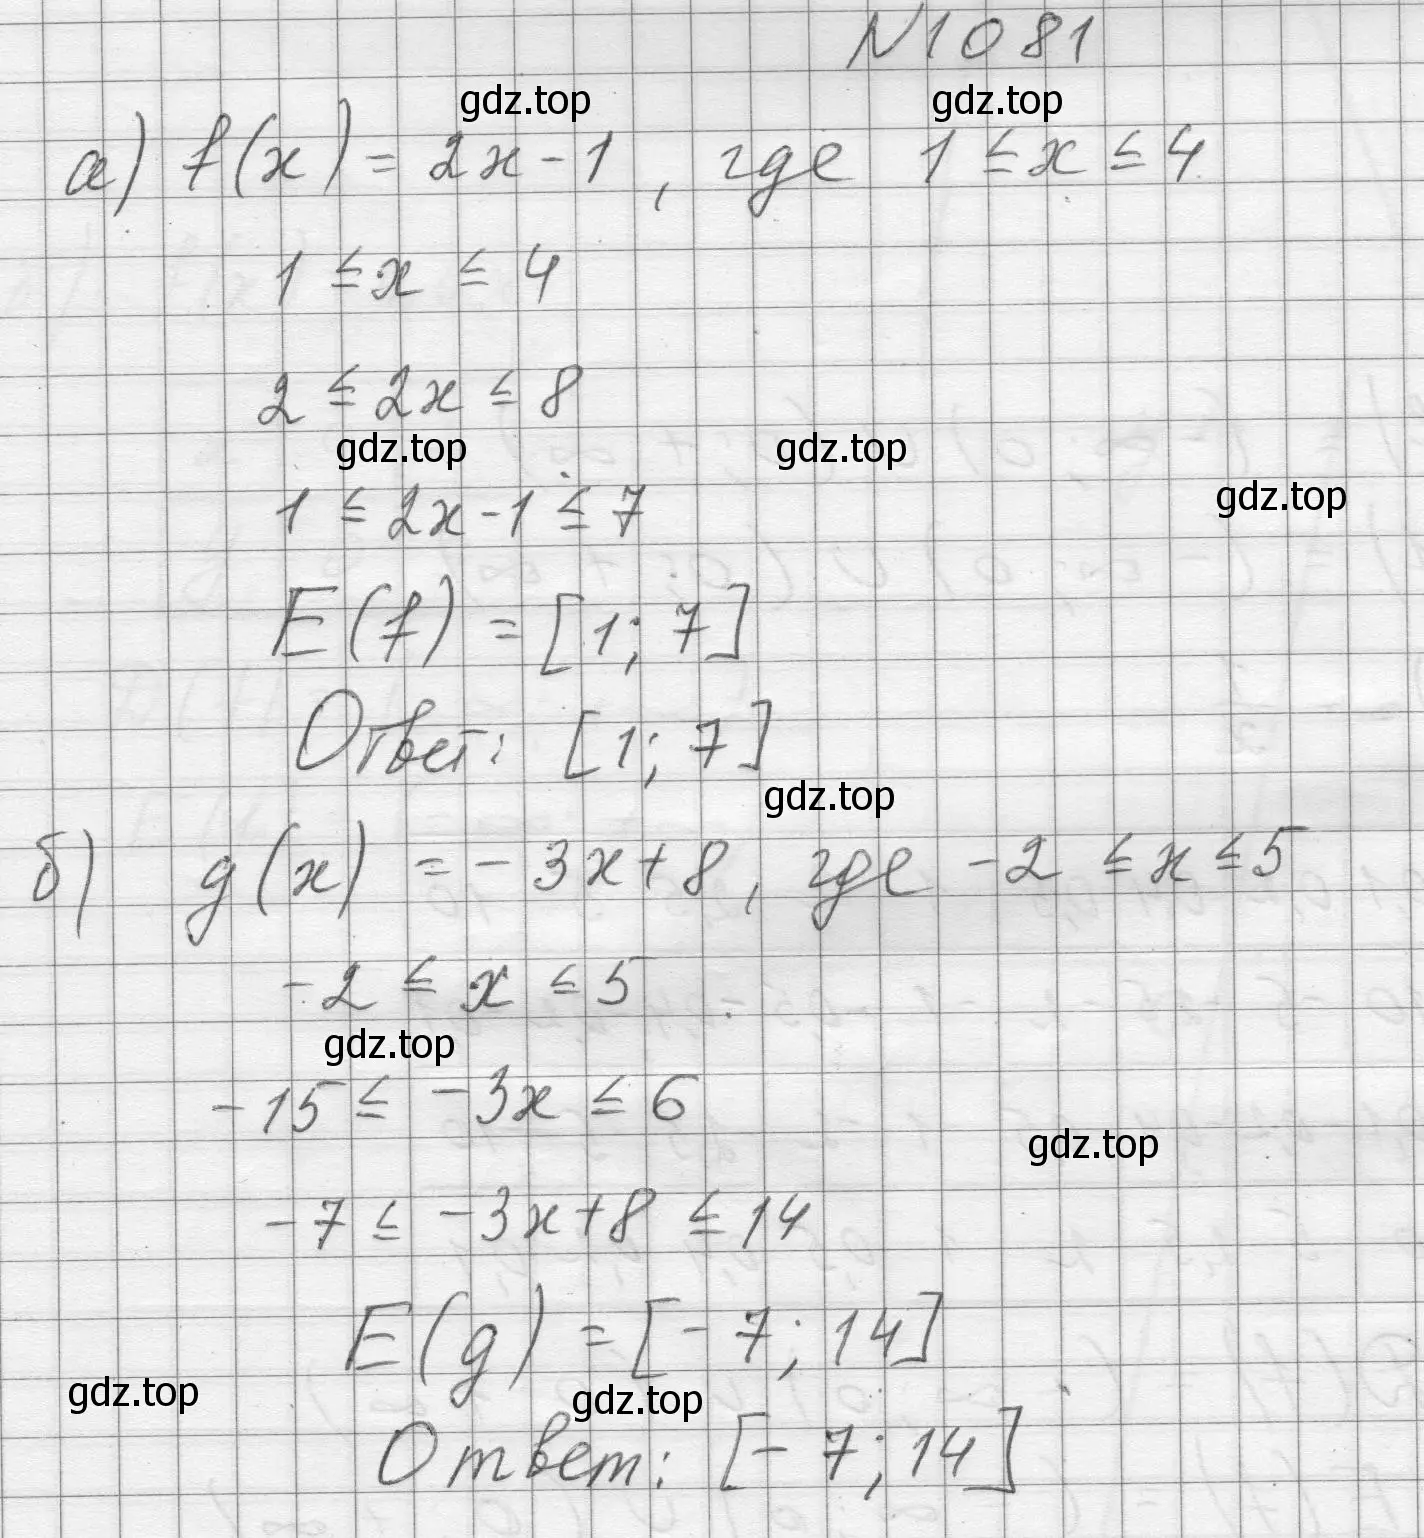 N1081
gdz.top gdz.top
а) f(x) = 2x - 1, где 1 ≤ x ≤ 4
1 ≤ x ≤ 4
2 ≤ 2x ≤ 8
gdz.top gdz.top
gdz.top
1 ≤ 2x - 1 ≤ 7
E(f) = [1; 7]
Ответ: [1; 7]
gdz.top
б) g(x) = -3x + 8, где -2 ≤ x ≤ 5
-2 ≤ x ≤ 5
gdz.top
-15 ≤ -3x ≤ 6
gdz.top
-7 ≤ -3x + 8 ≤ 14
E(g) = [-7; 14]
gdz.top gdz.top
Ответ: [-7; 14]